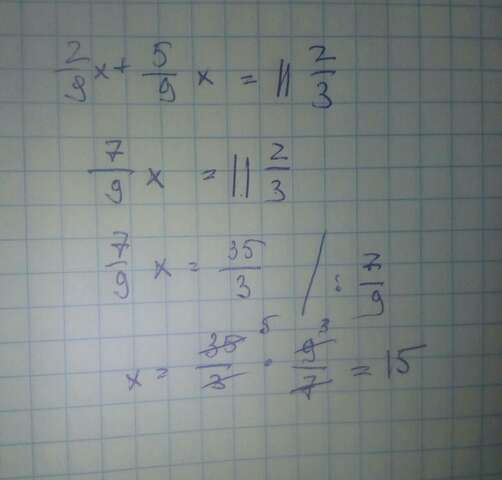 2/9 x + 5/9 x = 11 2/3
7/9 x = 11 2/3
7/9 x = 35/3 / : 7/9
x = 35/3 5 · 9/7 3 = 15